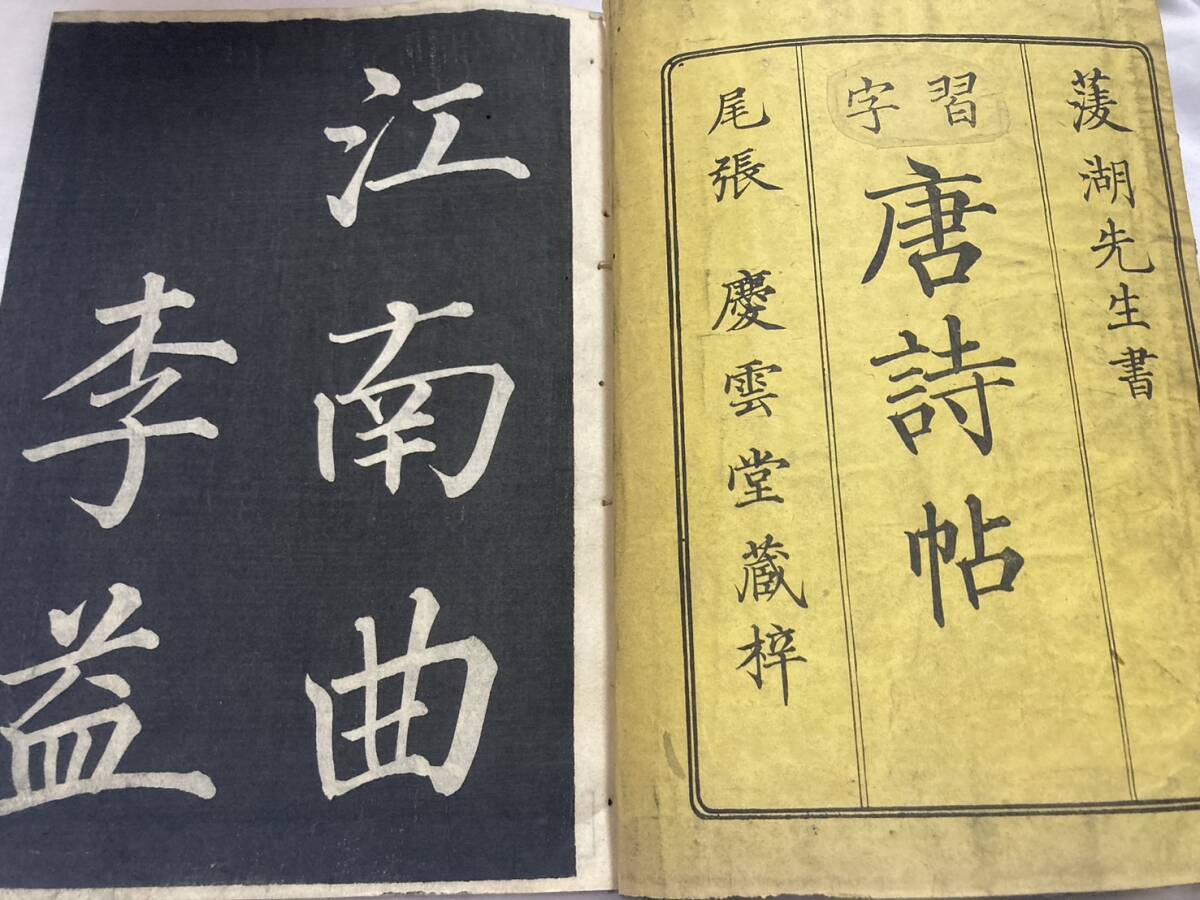 蔆湖先生書
習字
唐詩帖
尾張 慶雲堂蔵梓
江南曲
李益